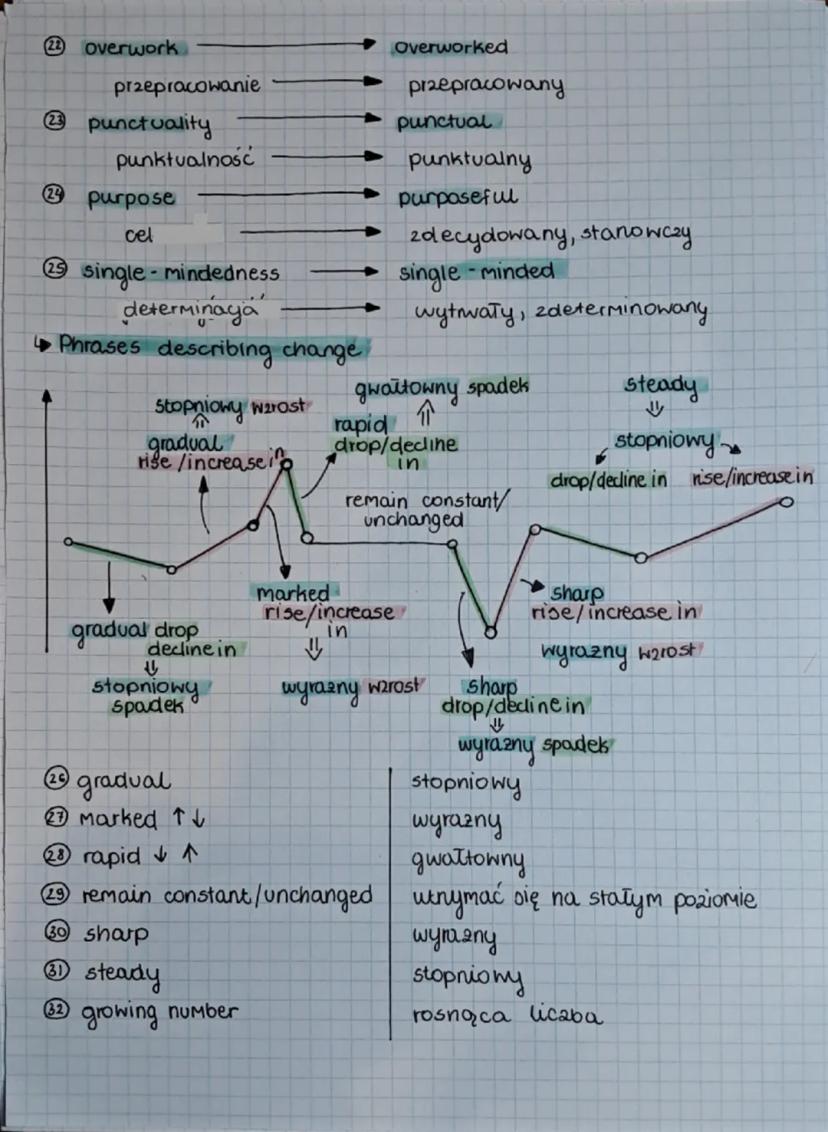 22 overwork → overworked
przepracowanie → przepracowany
23 punctuality → punctual
punktualność → punktualny
24 purpose → purposeful
cel → zdecydowany, stanowczy
25 single-mindedness → single-minded
determinacja → wytrwały, zdeterminowany
↳ Phrases describing change
stopniowy wzrost
⇑
gradual
rise/increase in
gwałtowny spadek
⇑
rapid
drop/decline
in
steady
⇓
stopniowy
drop/decline in rise/increase in
remain constant/
unchanged
gradual drop
decline in
⇓
stopniowy
spadek
marked
rise/increase
in
⇓
wyrazny wzrost
sharp
drop/decline in
⇓
wyrazny spadek
sharp
rise/increase in
wyrazny wzrost
26 gradual stopniowy
27 marked ↑↓ wyrazny
28 rapid ↓ ↑ gwałtowny
29 remain constant/unchanged utrzymać się na stałym poziomie
30 sharp wyrazny
31 steady stopniowy
32 growing number rosnąca liczba